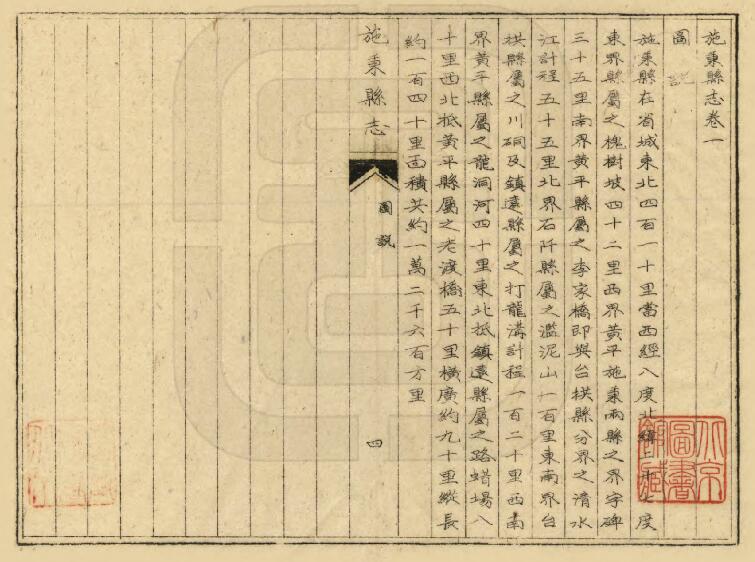 施秉縣志卷一
圖說
施秉縣在省城東北四百一十里當西經八度北緯二十七度
東界縣屬之槐樹坡四十二里西界黃平施秉兩縣之界字碑
三十五里南界黃平縣屬之李家橋即與台拱縣分界之清水
江計程五十五里北界石阡縣屬之濫泥山一百里東南界台
拱縣屬之川硐及鎮遠縣屬之打龍溝計程一百二十里西南
界黃平縣屬之龍洞河四十里東北抵鎮遠縣屬之路蜡場八
十里西北抵黃平縣屬之老渡橋五十里橫廣約九十里縱長
約一百四十里面積共約一萬二千六百方里
施秉縣志
圖說
四
北京
圖書
館藏